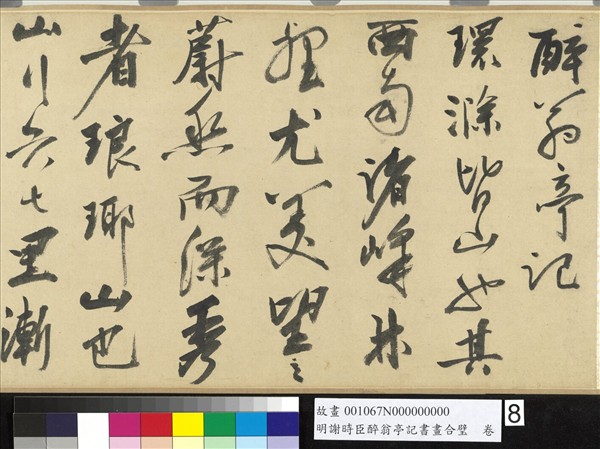 醉翁亭記
環滁皆山也其
西南諸峰林
壑尤美望之
蔚然而深秀
者琅琊山也
山行六七里漸
故畫 001067N000000000
明謝時臣醉翁亭記書畫合璧 卷
8